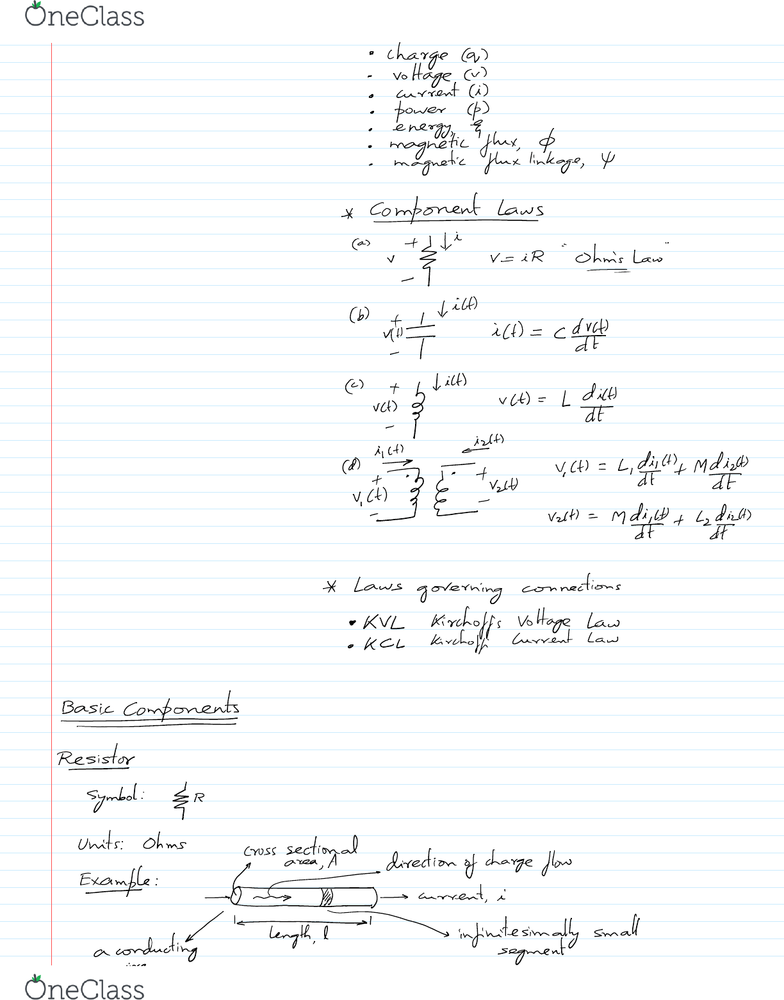 OneClass
• charge (q)
- voltage (v)
• current (i)
• power (p)
• energy, ξ
• magnetic flux, ϕ
- magnetic flux linkage, ψ
* Component Laws
(a) + ↓ i
v
-
v = iR "Ohm's Law"
(b) + ↓ i(t)
v(t)
-
i(t) = C dv(t)/dt
(c) + ↓ i(t)
v(t)
-
v(t) = L di(t)/dt
i₁(t) i₂(t)
(d) + +
v₁(t) v₂(t)
- -
v₁(t) = L₁ di₁(t)/dt + M di₂(t)/dt
v₂(t) = M di₁(t)/dt + L₂ di₂(t)/dt
* Laws governing connections
• KVL Kirchoff's Voltage Law
• KCL Kirchoff Current Law
Basic Components
Resistor
Symbol: R
Units: Ohms
Example:
cross sectional
area, A
direction of charge flow
→ current, i
Length, l
infinitesimally small
segment
a conducting
OneClass